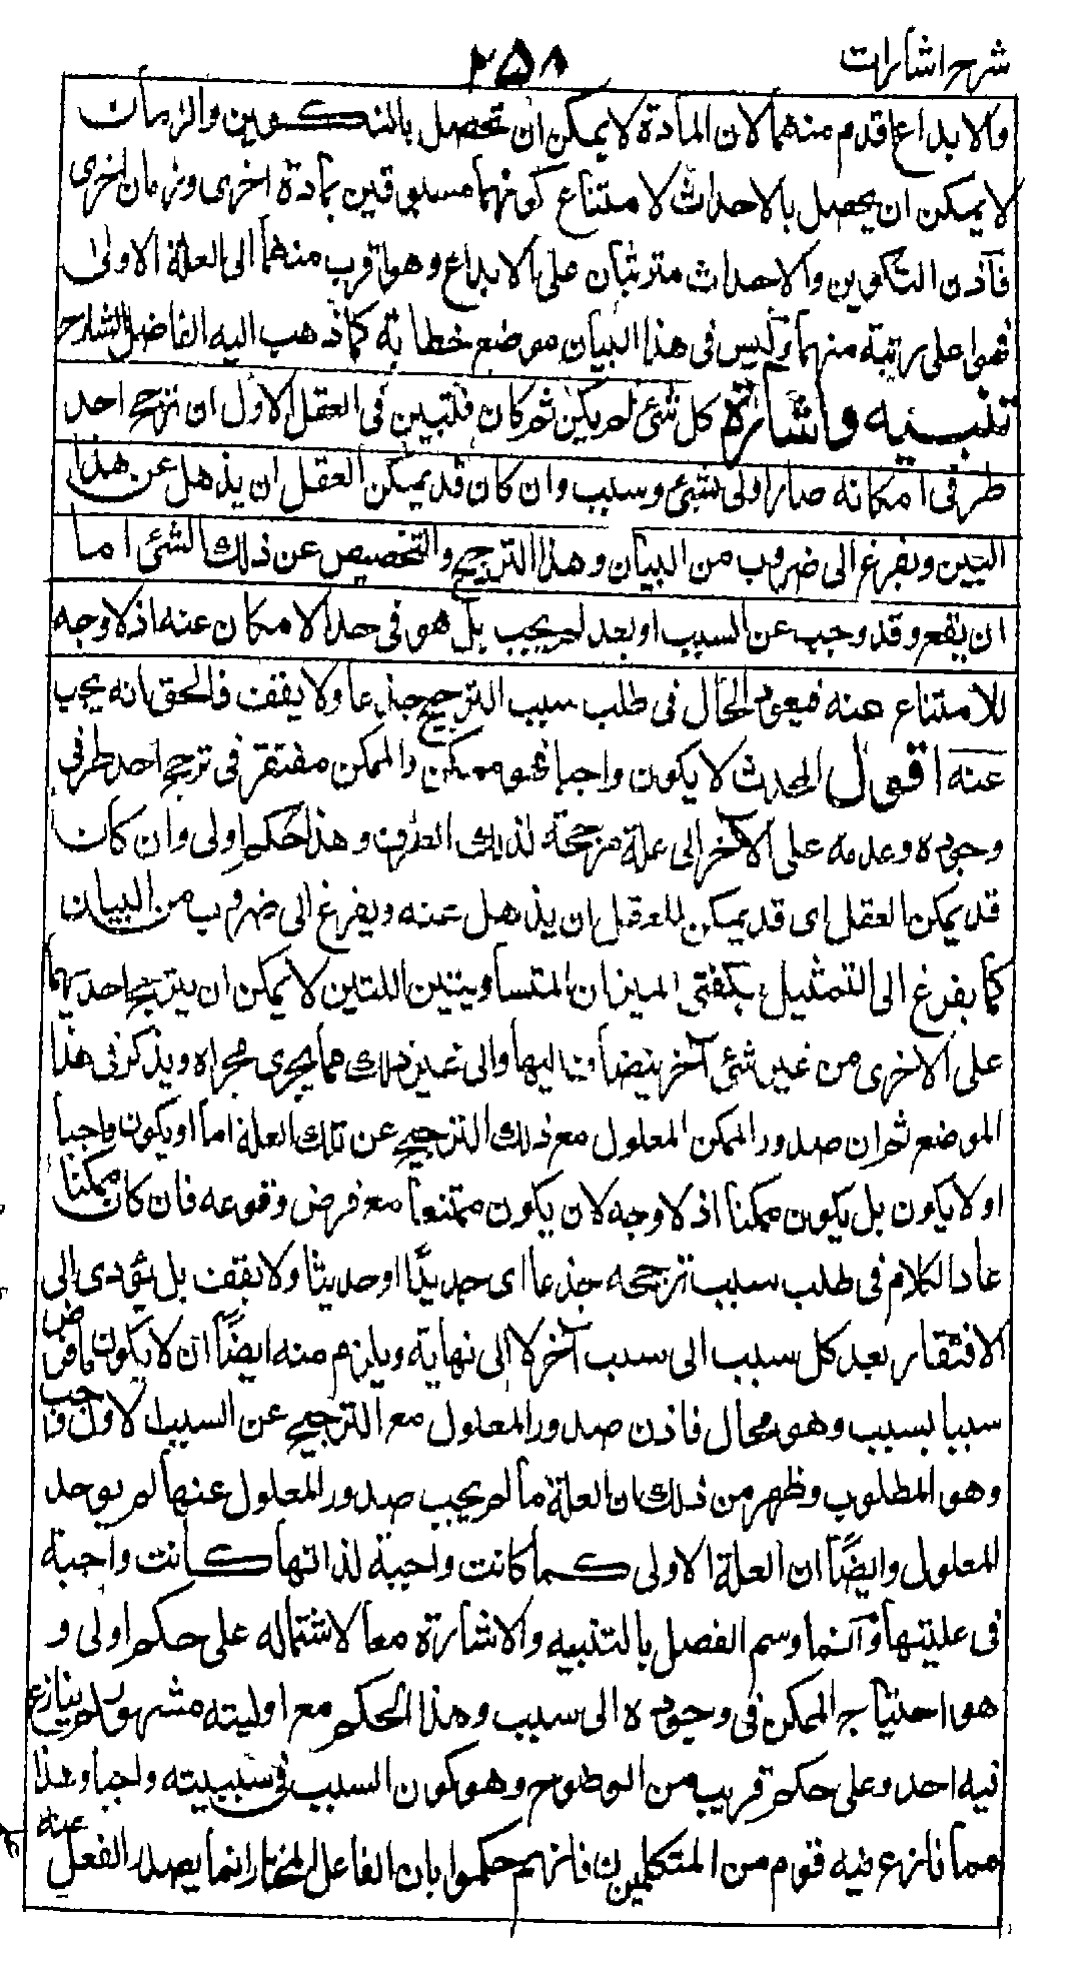 شرح اشارات
۲۵۸
والابداع اقدم منهما لان المادة لا يمكن ان تحصل بالتكوين والزمان
لا يمكن ان يحصل بالاحداث لامتناع كونهما مسبوقين بمادة اخرى وزمان اخرى
فآذن التكوين والاحداث مترتبان على الابداع وهو اقرب منهما الى العلة الاولى
فهو اعلى رتبة منهما وليس فى هذا البيان موضع خطابة كما ذهب اليه الفاضل الشارح
تنبيه واشارة كل شئ لم يكن ثم كان فتبين فى العقل الاول ان ترجح احد
طرفى امكانه صار اولى بشئ وسبب وان كان قد يمكن العقل ان يذهل عن هذا
البين ويفزع الى ضروب من البيان وهذا الترجيح والتخصيص عن ذلك الشئ اما
ان يقع وقد وجب عن السبب او بعد لم يجب بل هو فى حد الامكان عنه اذ لا وجه
للامتناع عنه فيعود الحال فى طلب سبب الترجيح جذعا ولا يقف فالحق انه يجب
عنه اقول المحدث لا يكون واجبا فهو ممكن والممكن مفتقر فى ترجح احد طرفى
وجوده وعدمه على الآخر الى علة مرجحة لذلك الطرف وهذا حكم اولى وان كان
قد يمكن العقل اى قد يمكن للعقل ان يذهل عنه ويفزع الى ضروب من البيان
كما يفزع الى التمثيل بكفتى الميزان المتساويتين اللتين لا يمكن ان يترجح احديهما
على الاخرى من غير شئ آخر ينضاف اليها والى غير ذلك مما يجرى مجراه ويذكر فى هذا
الموضع ثم ان صدور الممكن المعلول مع ذلك الترجيح عن تلك العلة اما او يكون واجبا
او لا يكون بل يكون ممكنا اذ لا وجه لان يكون ممتنعا مع فرض وقوعه فان كان ممكنا
عاد الكلام فى طلب سبب ترجحه جذعا اى جديدًا او حديثا ولا يقف بل يؤدى الى
الافتقار بعد كل سبب الى سبب آخر لا الى نهاية ويلزم منه ايضًا ان لا يكون ما فرض
سببا بسبب وهو محال فاذن صدور المعلول مع الترجيح عن السبب الاول واجب
وهو المطلوب وظهر من ذلك ان العلة ما لم يجب صدور المعلول عنها لم يوجد
المعلول وايضًا ان العلة الاولى كما كانت واجبة لذاتها كانت واجبة
فى عليتها وآنما وسم الفصل بالتنبيه والاشارة معا لاشتماله على حكم اولى و
هو احتياج الممكن فى وجوده الى سبب وهذا الحكم مع اوليته مشهور لم ينازع
فيه احد وعلى حكم قريب من الوضوح وهو كون السبب فى سببيته واجبا وهذا
مما نازع فيه قوم من المتكلمين فانهم حكموا بان الفاعل المختار انما يصدر الفعل عنه